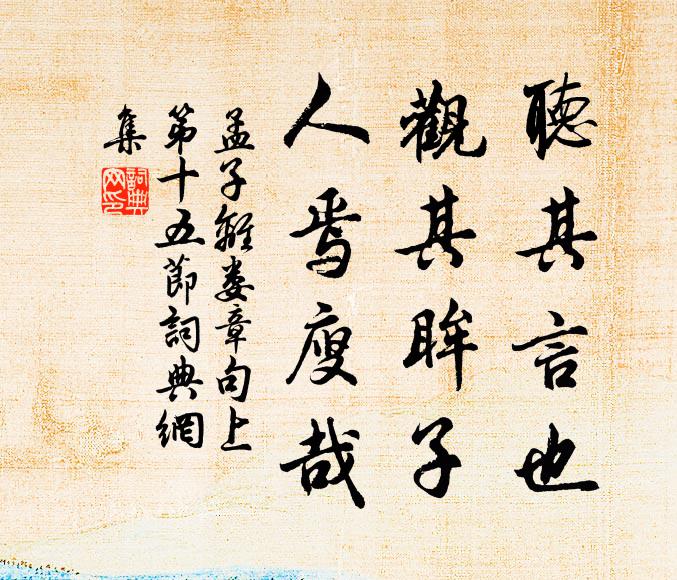 聽其言也
觀其眸子
人焉廋哉
孟子離婁章句上
第十五節詞典網
集
詞典
网印